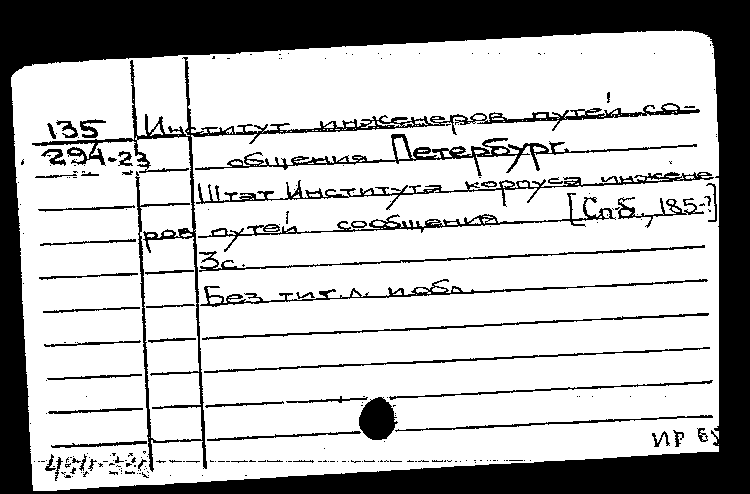 135 Институт инженеров путей со-
294-23 общения Петербург.
Штат Института корпуса инжене
ров путей сообщения [Спб., 185-?]
3с.
Без тит.л. и обл.
ИР